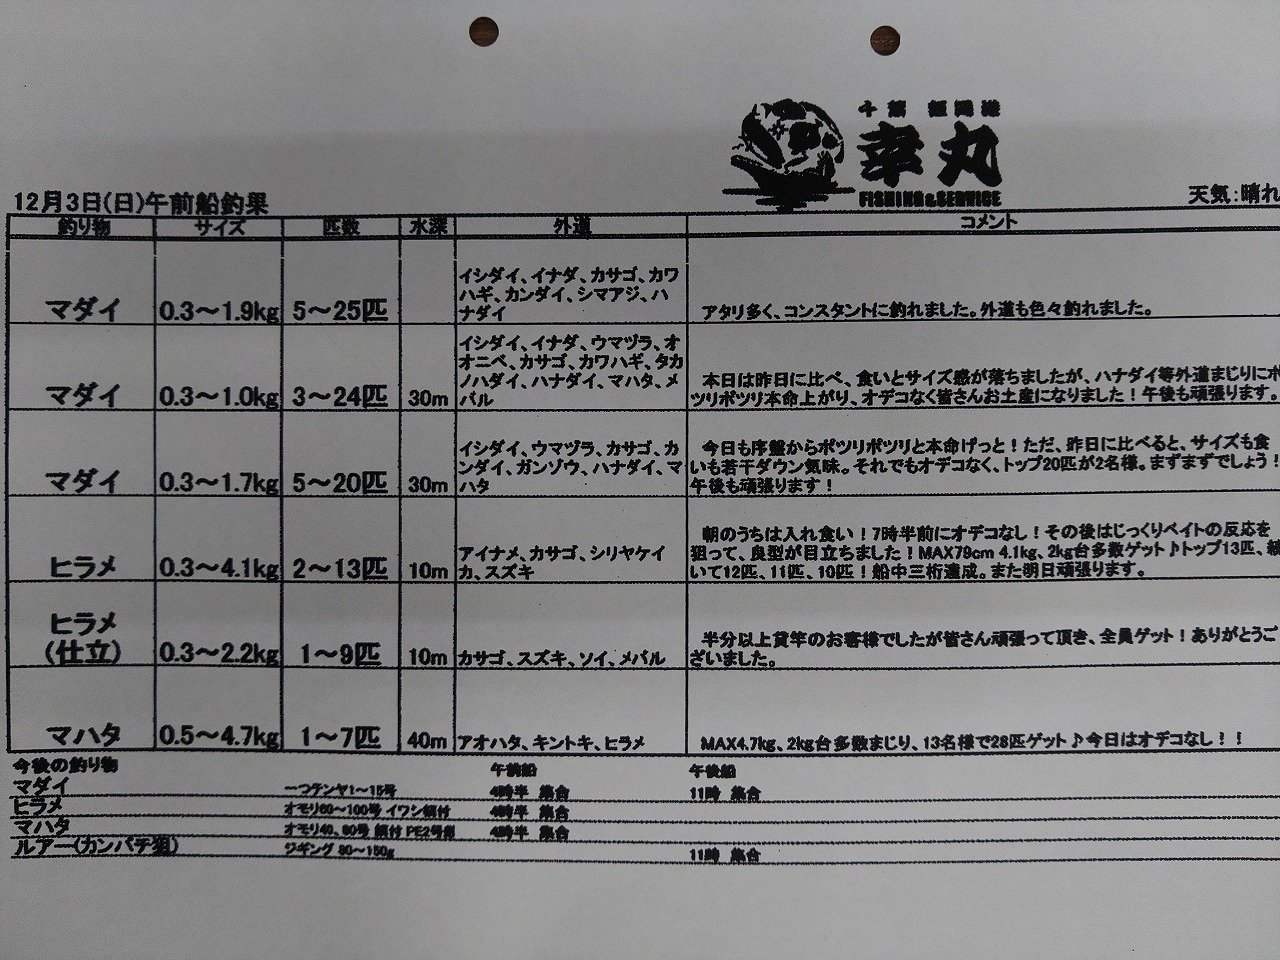 千葉 飯岡港
幸丸
FISHING&SERVICE
12月3日(日)午前船釣果
天気:晴れ
釣り物 サイズ 匹数 水深 外道 コメント
マダイ 0.3～1.9kg 5～25匹
イシダイ、イナダ、カサゴ、カワ
ハギ、カンダイ、シマアジ、ハ
ナダイ
アタリ多く、コンスタントに釣れました。外道も色々釣れました。
マダイ 0.3～1.0kg 3～24匹 30m
イシダイ、イナダ、ウマヅラ、オ
オニベ、カサゴ、カワハギ、タカ
ノハダイ、ハナダイ、マハタ、メ
バル
本日は昨日に比べ、食いとサイズ感が落ちましたが、ハナダイ等外道まじりにポ
ツリポツリ本命上がり、オデコなく皆さんお土産になりました！午後も頑張ります。
マダイ 0.3～1.7kg 5～20匹 30m
イシダイ、ウマヅラ、カサゴ、カ
ンダイ、ガンゾウ、ハナダイ、マ
ハタ
今日も序盤からポツリポツリと本命げっと！ただ、昨日に比べると、サイズも食
いも若干ダウン気味。それでもオデコなく、トップ20匹が2名様。まずまずでしょう！
午後も頑張ります！
ヒラメ 0.3～4.1kg 2～13匹 10m
アイナメ、カサゴ、シリヤケイ
カ、スズキ
朝のうちは入れ食い！7時半前にオデコなし！その後はじっくりベイトの反応を
狙って、良型が目立ちました！MAX79cm 4.1kg、2kg台多数ゲット♪トップ13匹、続
いて12匹、11匹、10匹！船中三桁達成。また明日頑張ります。
ヒラメ
(仕立) 0.3～2.2kg 1～9匹 10m カサゴ、スズキ、ソイ、メバル
半分以上貸竿のお客様でしたが皆さん頑張って頂き、全員ゲット！ありがとうご
ざいました。
マハタ 0.5～4.7kg 1～7匹 40m アオハタ、キントキ、ヒラメ MAX4.7kg、2kg台多数まじり、13名様で28匹ゲット♪今日はオデコなし！！
今後の釣り物 午前船 午後船
マダイ 一つテンヤ1～15号 4時半 集合 11時 集合
ヒラメ オモリ60～100号 イワシ餌付 4時半 集合
マハタ オモリ40、80号 餌付 PE2号用 4時半 集合
ルアー(カンパチ狙) ジギング 80～150g 11時 集合